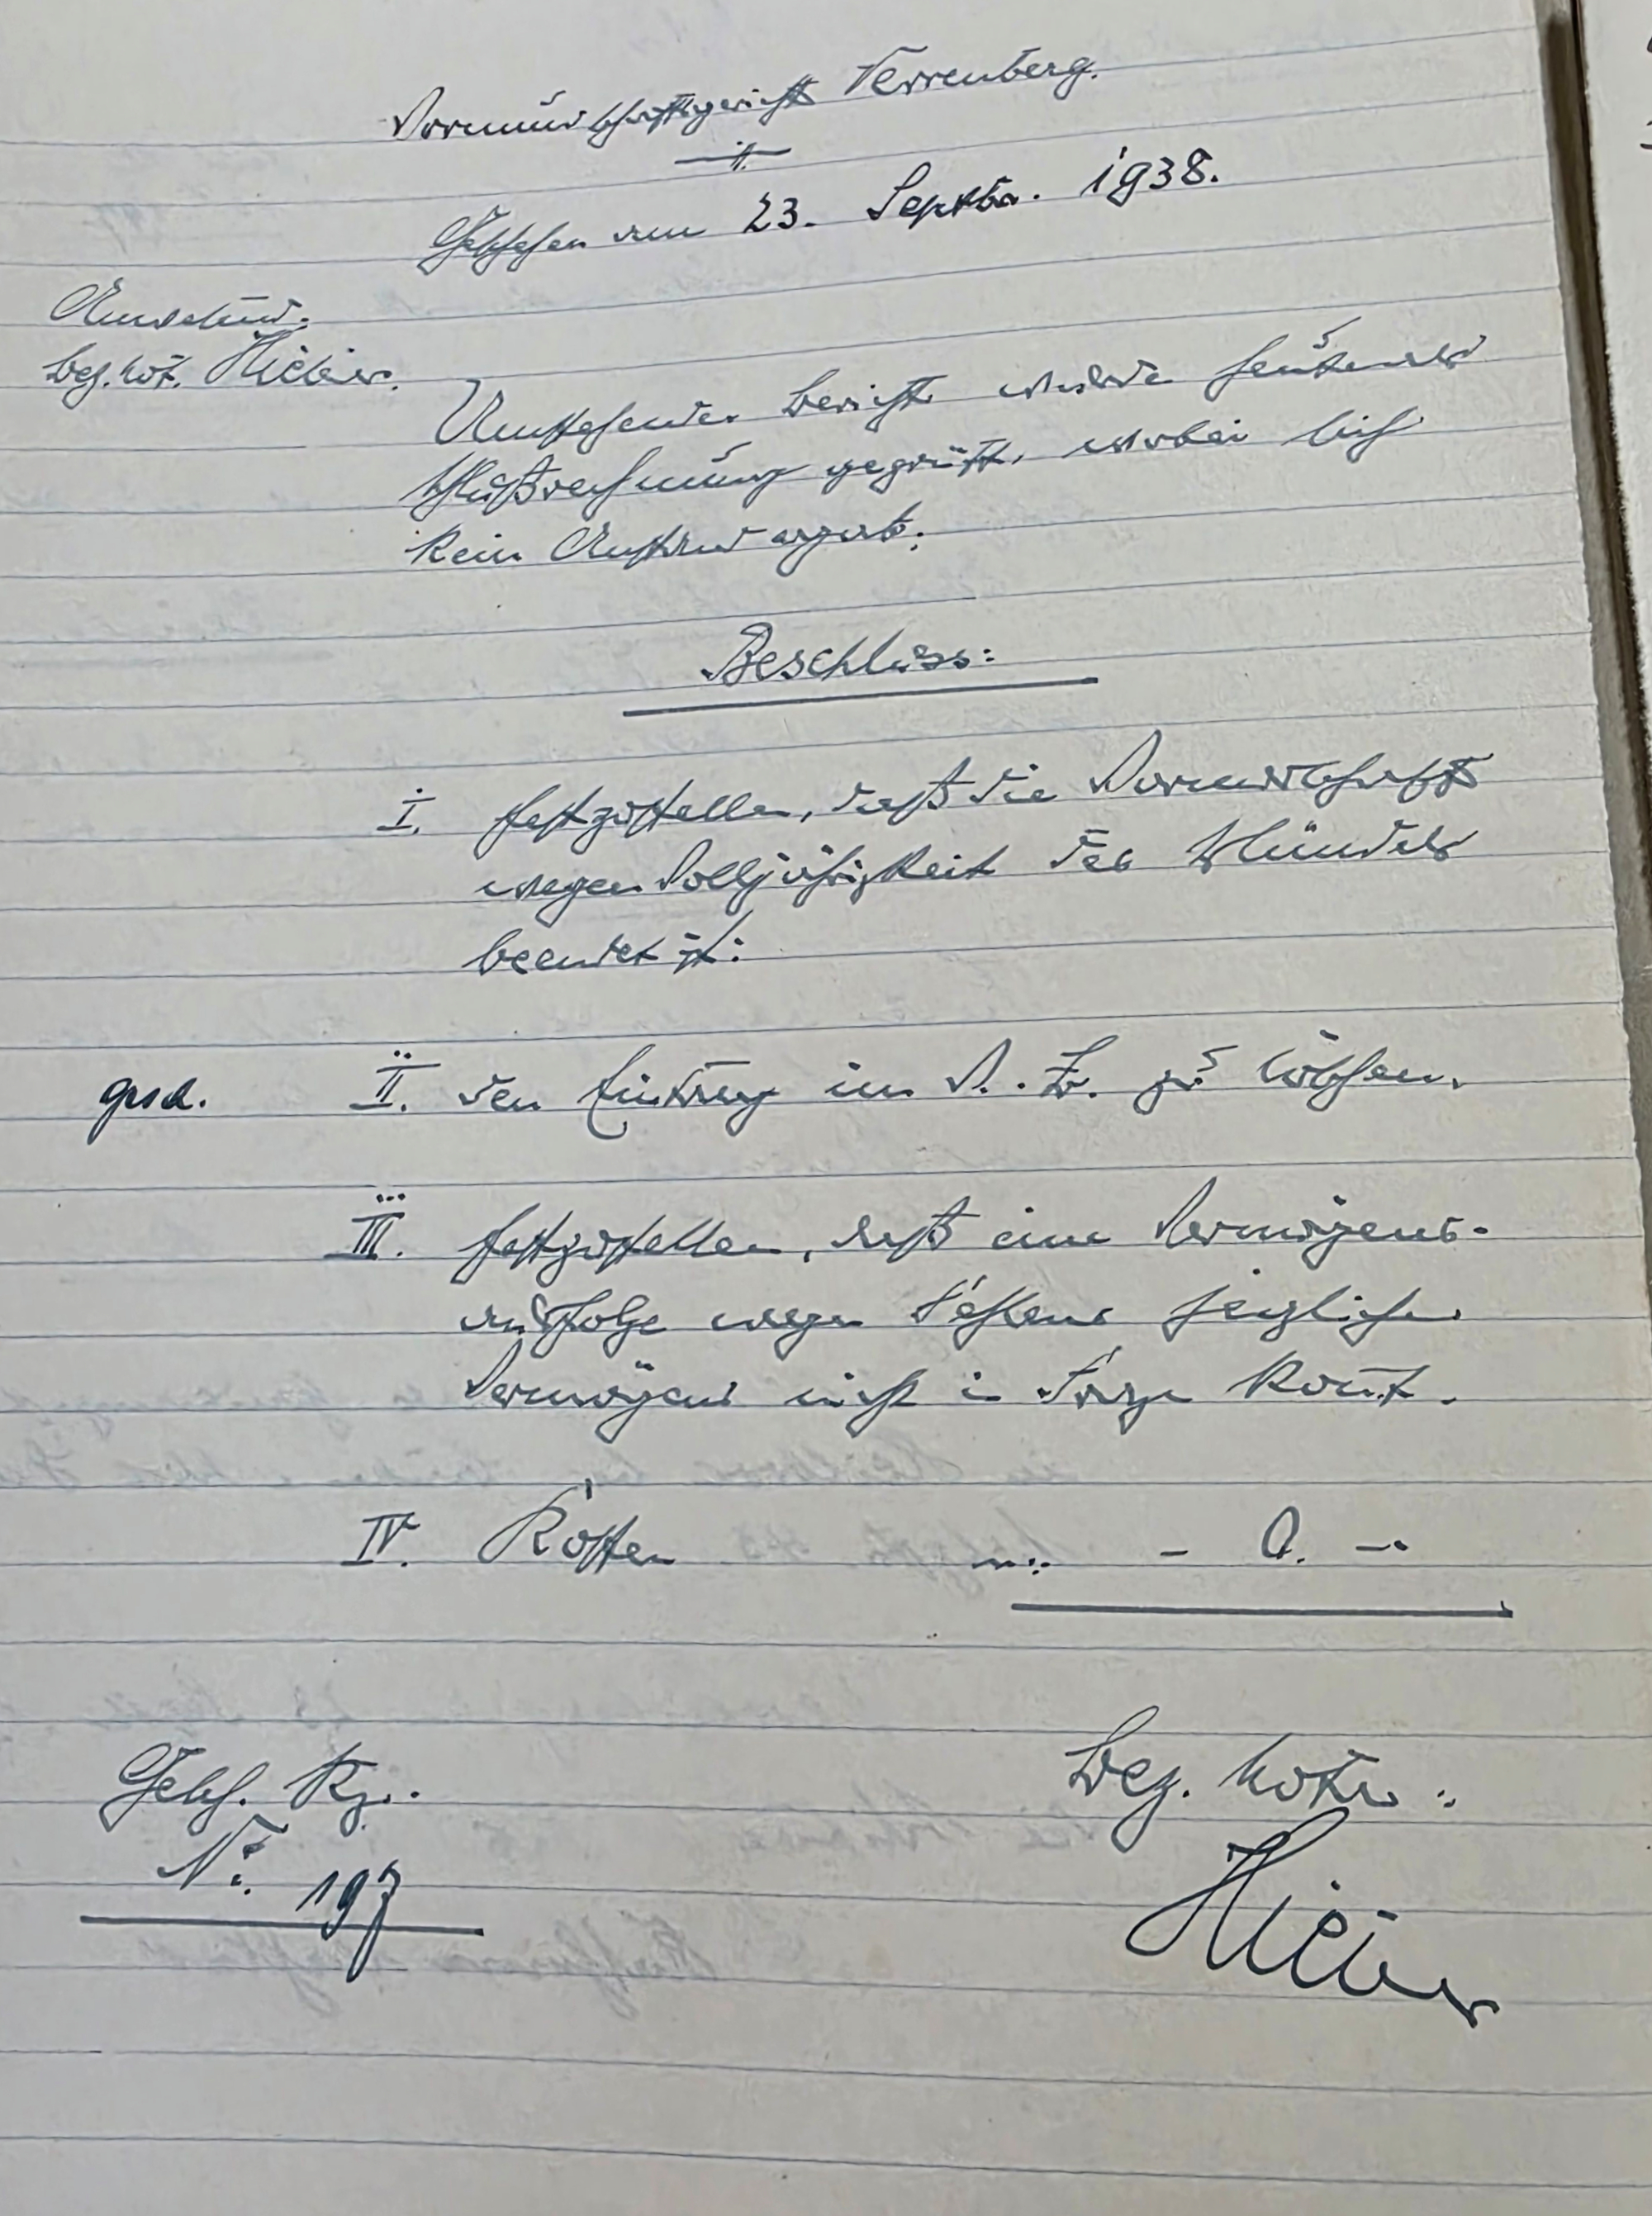 Vormundschaftsgericht Verrenberg.
Geschehen am 23. Septbr. 1938.
Anwesend:
Bez. Not. Hieber.
Umstehender Bericht wurde
Schlußrechnung geprüft, wobei sich
kein Anstand ergab.
Beschluss:
I. festzustellen, daß die Vormundschaft
wegen Volljährigkeit des Mündels
beendet ist.
gesch. II. den Eintrag im V. B. zu löschen.
III. festzustellen, daß eine Vermögens-
ausfolge wegen Fehlens jeglichen
Vermögens nicht in Frage kommt.
IV. Kosten - 0. -
Gesch. Rg.
No. 197
Bez. Notar:
Hieber